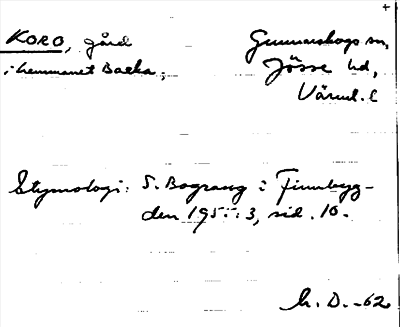 KORO, gård
Gunnarskogs sn,
i hemmanet Backa,
Jösse hd,
Värml. l
Etymologi: S. Bograng i Finnbyg-
den 1955:3, sid. 10.
h. D. -62